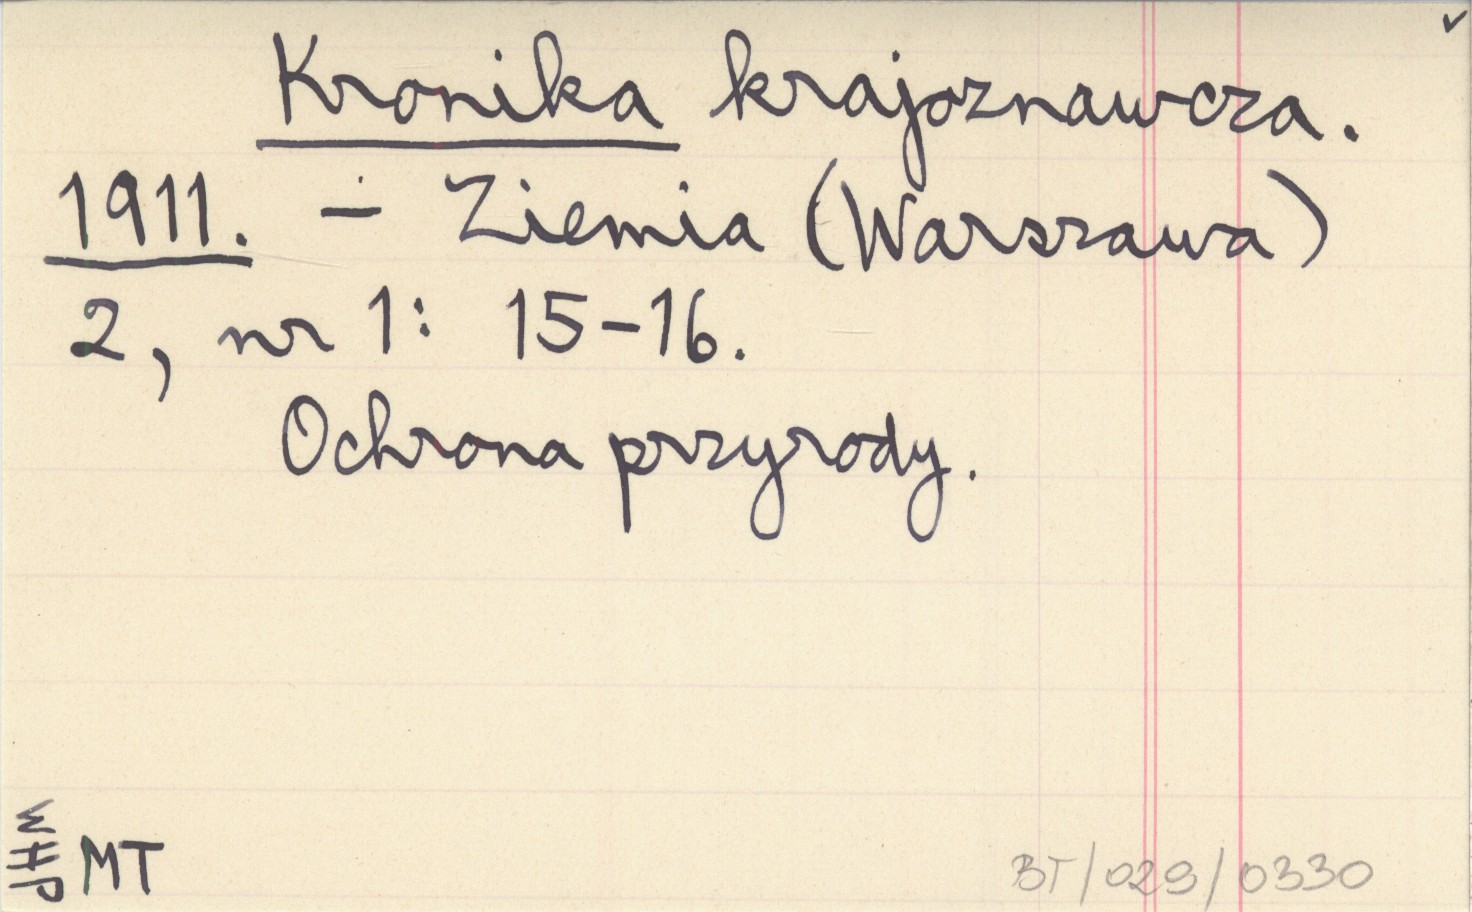 Kronika krajoznawcza.
1911. — Ziemia (Warszawa)
2, nr 1: 15-16.
Ochrona przyrody.
MT
BT/029/0330